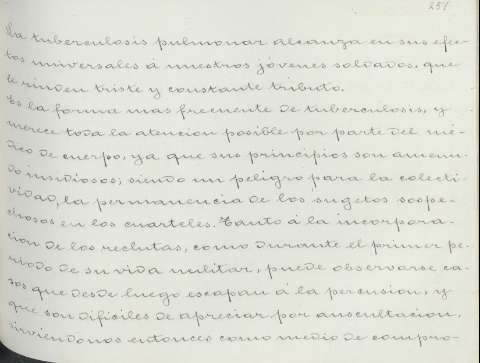 251
La tuberculosis pulmonar alcanza en sus efec-
tos universales á nuestros jóvenes soldados, que
le rinden triste y constante tributo.
Es la forma mas frecuente de tuberculosis, y
merece toda la atencion posible por parte del mé-
dico de cuerpo, ya que sus principios son amenu-
do insidiosos; siendo un peligro para la colecti-
vidad, la permanencia de los sugetos sospe-
chosos en los cuarteles. Tanto á la incorpora-
cion de los reclutas, como durante el primer pe-
riodo de su vida militar, puede observarse ca-
sos que desde luego escapan á la percusion, y
que son dificiles de apreciar por auscultacion,
sirviendonos entonces como medio de compro-